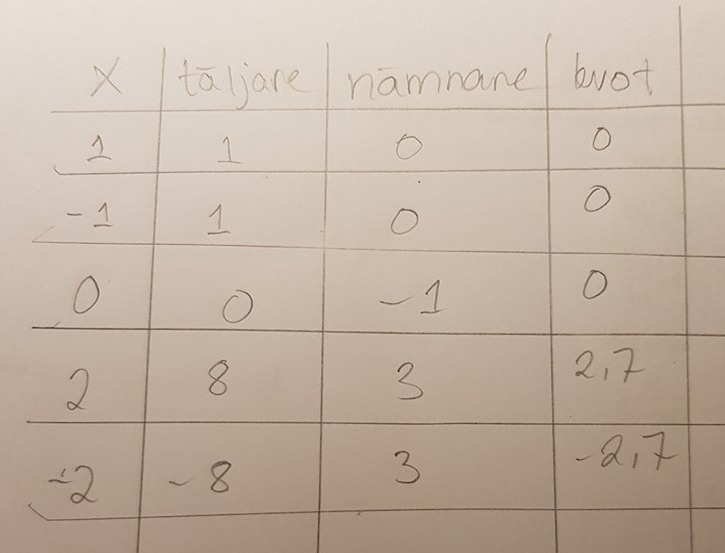 x täljare nämnare kvot
1 1 0 0
-1 1 0 0
0 0 -1 0
2 8 3 2,7
-2 -8 3 -2,7